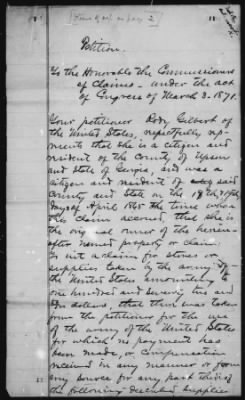 Petition.
To the Honorable the Commissioners
of Claims - under the act
of Congress of March 3. 1871.
Your petitioner Gilbert of
the United States, respectfully rep-
resents that she is a citizen and
resident of the County of Upson
and State of Georgia, and was a
citizen and resident of said
County and State on the 18th
day of April 1865 the time when
claim accrued, that she is
the original owner of the herein-
after named property or claim.
is not a claim for stores or
supplies taken by the army of
the United States amounting to
one hundred and seventy two and
dollars, that there was taken
from the petitioner for the use
of the army of the United States
for which no payment has
been made, or compensation
received in any manner or from
any source for any part thereof
the following described supplies